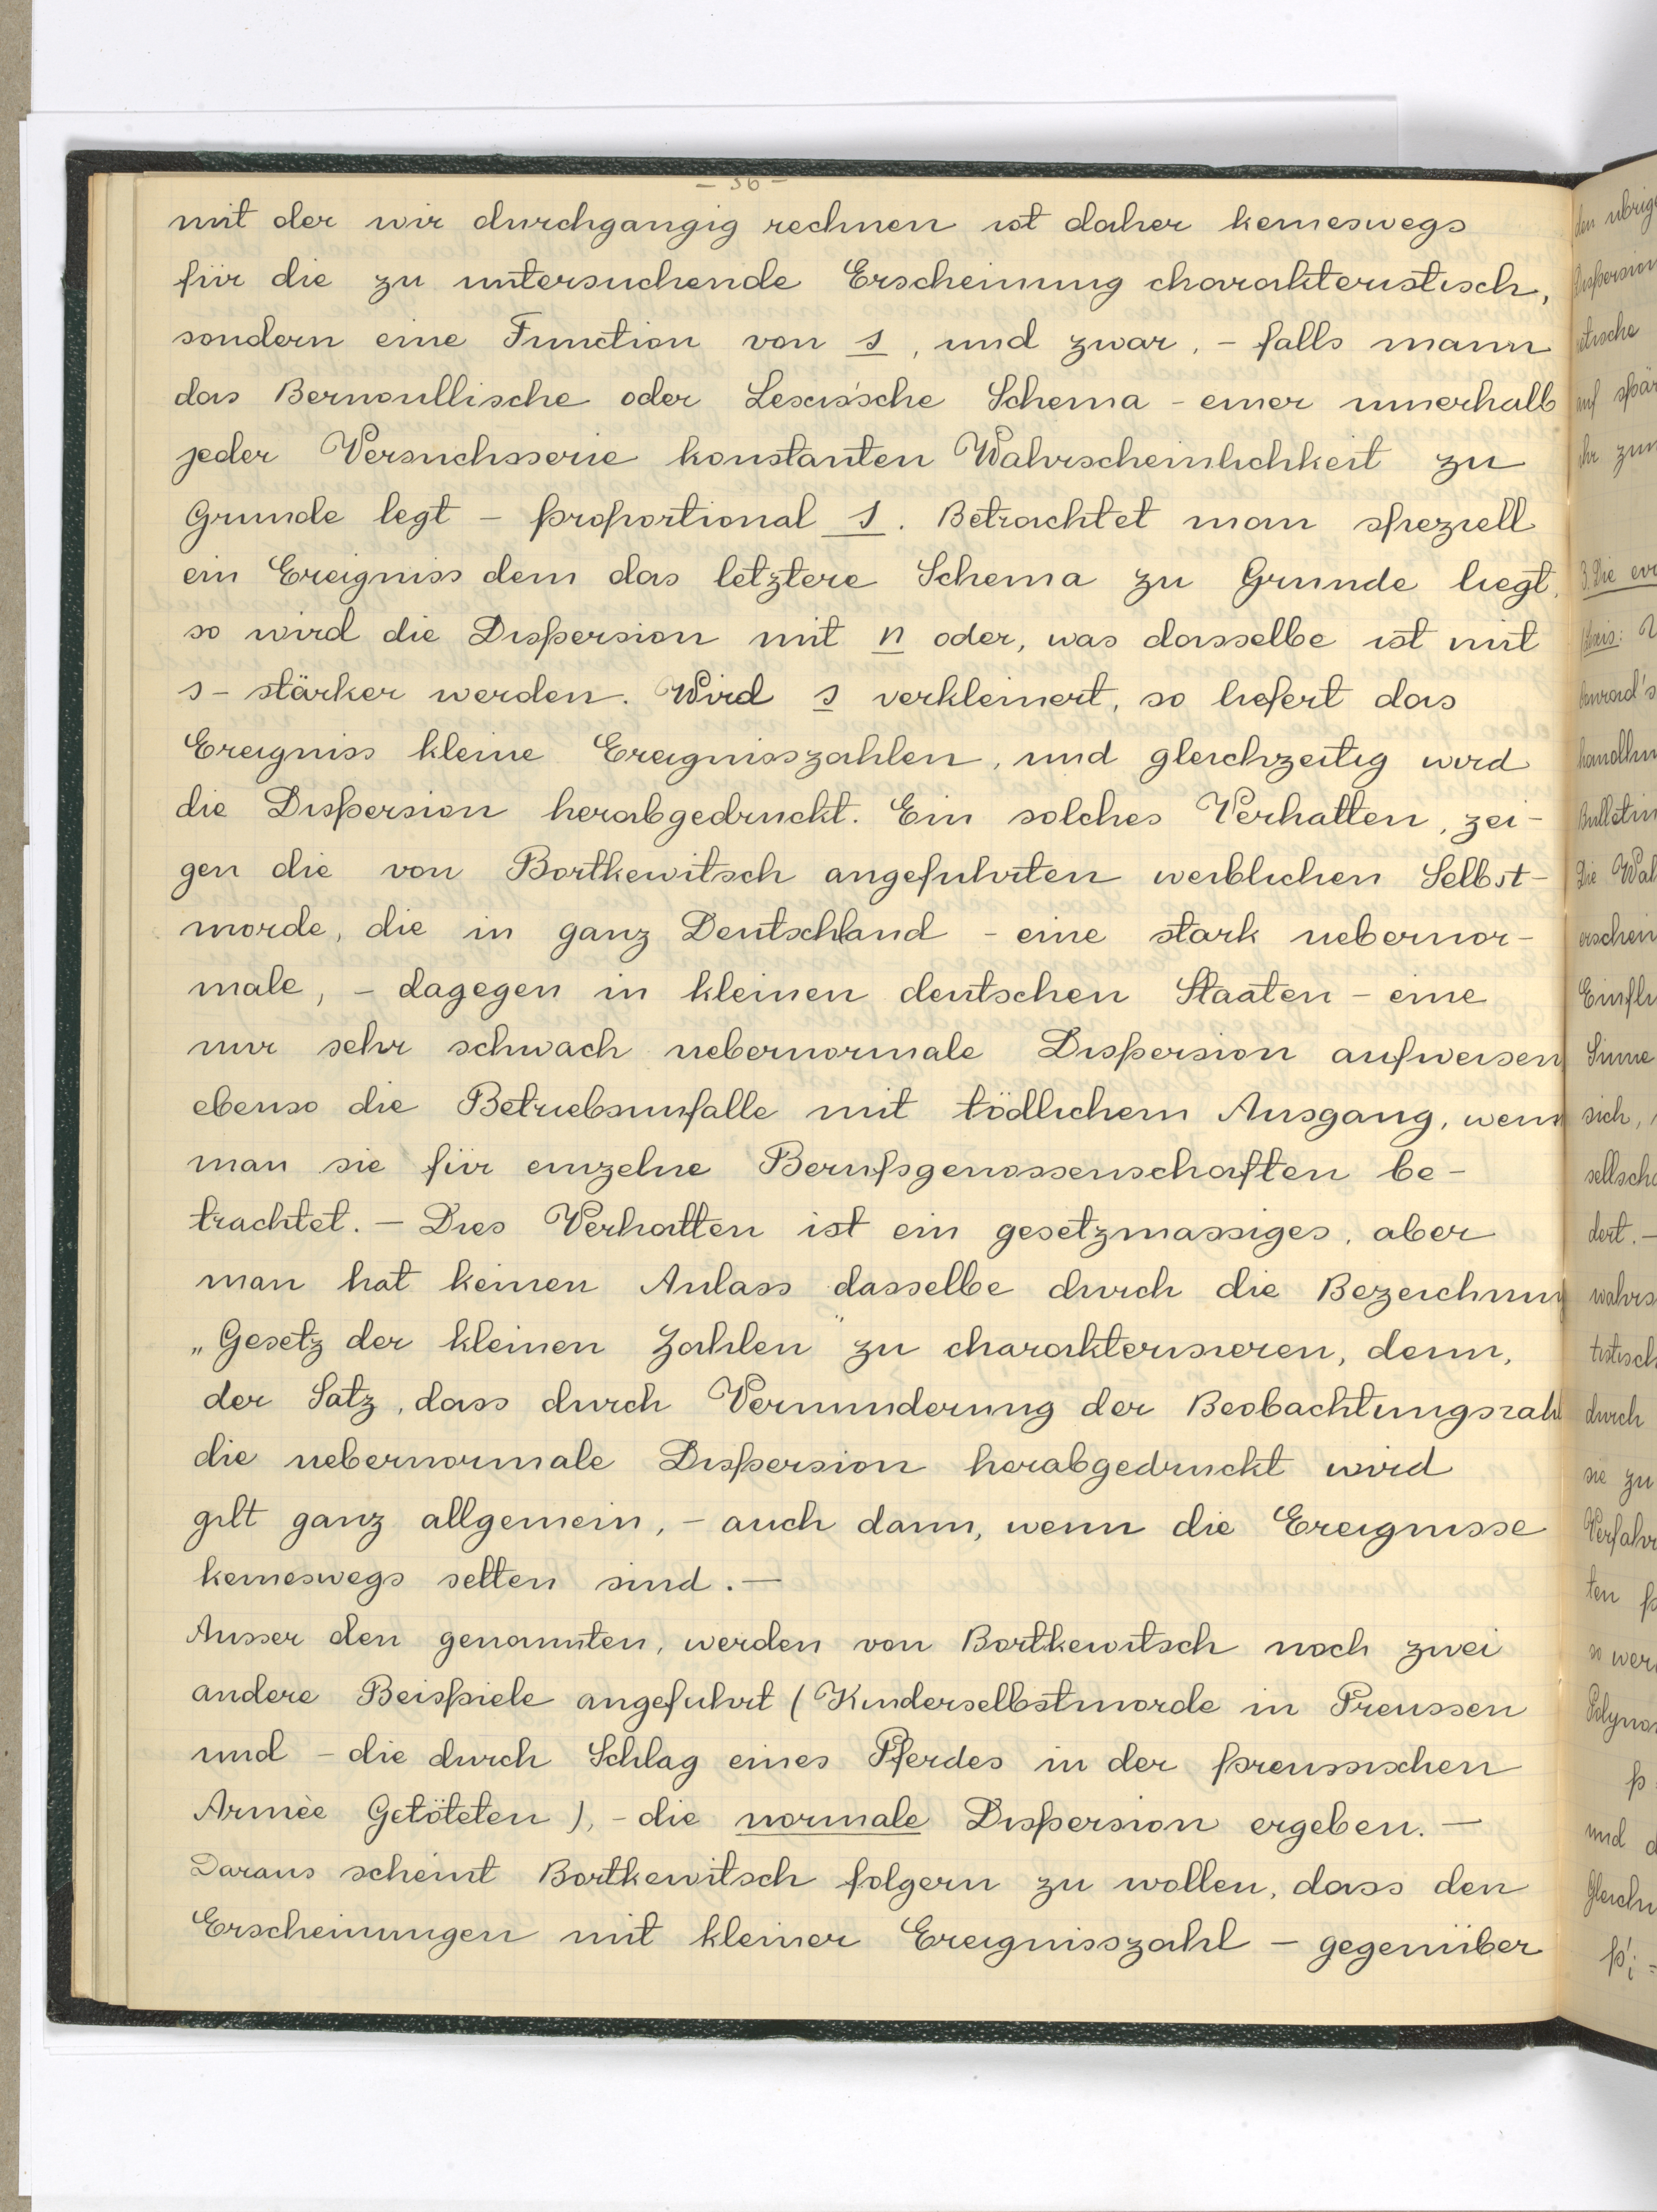 - 36 -
mit der wir durchgangig rechnen ist daher keineswegs
für die zu untersuchende Erscheinung charakteristisch,
sondern eine Function von s, und zwar, - falls mann
das Bernoullische oder Lexis'sche Schema - einer innerhalb
jeder Versuchsserie konstanten Wahrscheinlichkeit zu
Grunde legt - proportional s. Betrachtet man speziell
ein Ereigniss dem das letztere Schema zu Grunde liegt,
so wird die Dispersion mit n oder, was dasselbe ist mit
s - stärker werden. Wird s verkleinert, so liefert das
Ereigniss kleine Ereignisszahlen, und gleichzeitig wird
die Dispersion herabgedruckt. Ein solches Verhalten, zei-
gen die von Bortkewitsch angefuhrten weiblichen Selbst-
morde, die in ganz Deutschland - eine stark uebernor-
male, - dagegen in kleinen deutschen Staaten - eine
nur sehr schwach uebernormale Dispersion aufweisen
ebenso die Betriebsunfalle mit tödlichem Ausgang, wenn
man sie für einzelne Berufsgenossenschaften be-
trachtet. - Dies Verhalten ist ein gesetzmassiges, aber
man hat keinen Anlass dasselbe durch die Bezeichnung
„Gesetz der kleinen Zahlen" zu charakterisieren, denn,
der Satz, dass durch Verminderung der Beobachtungszahl
die uebernormale Dispersion herabgedruckt wird
gilt ganz allgemein, - auch dann, wenn die Ereignisse
keineswegs selten sind. -
Ausser den genannten, werden von Bortkewitsch noch zwei
andere Beispiele angefuhrt (Kinderselbstmorde in Preussen
und - die durch Schlag eines Pferdes in der preussischen
Armèe Getöteten), - die normale Dispersion ergeben. -
Daraus scheint Bortkewitsch folgern zu wollen, dass den
Erscheinungen mit kleiner Ereignisszahl - gegenüber